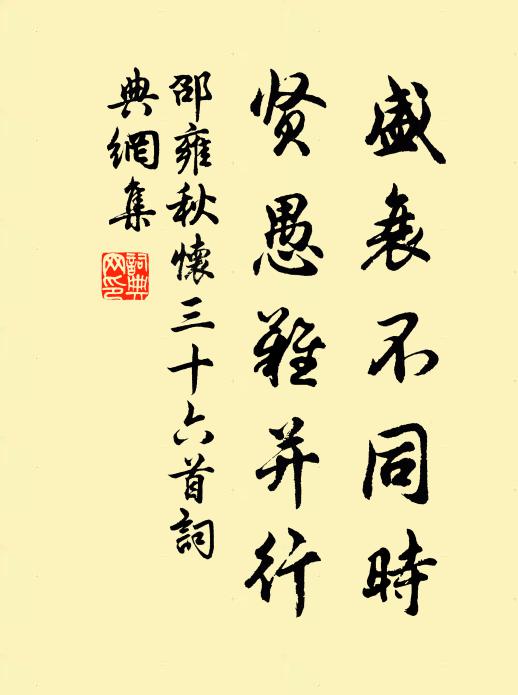 盛衰不同時
贤愚難并行
邵雍秋懷三十六首詞
典網集
詞典網印